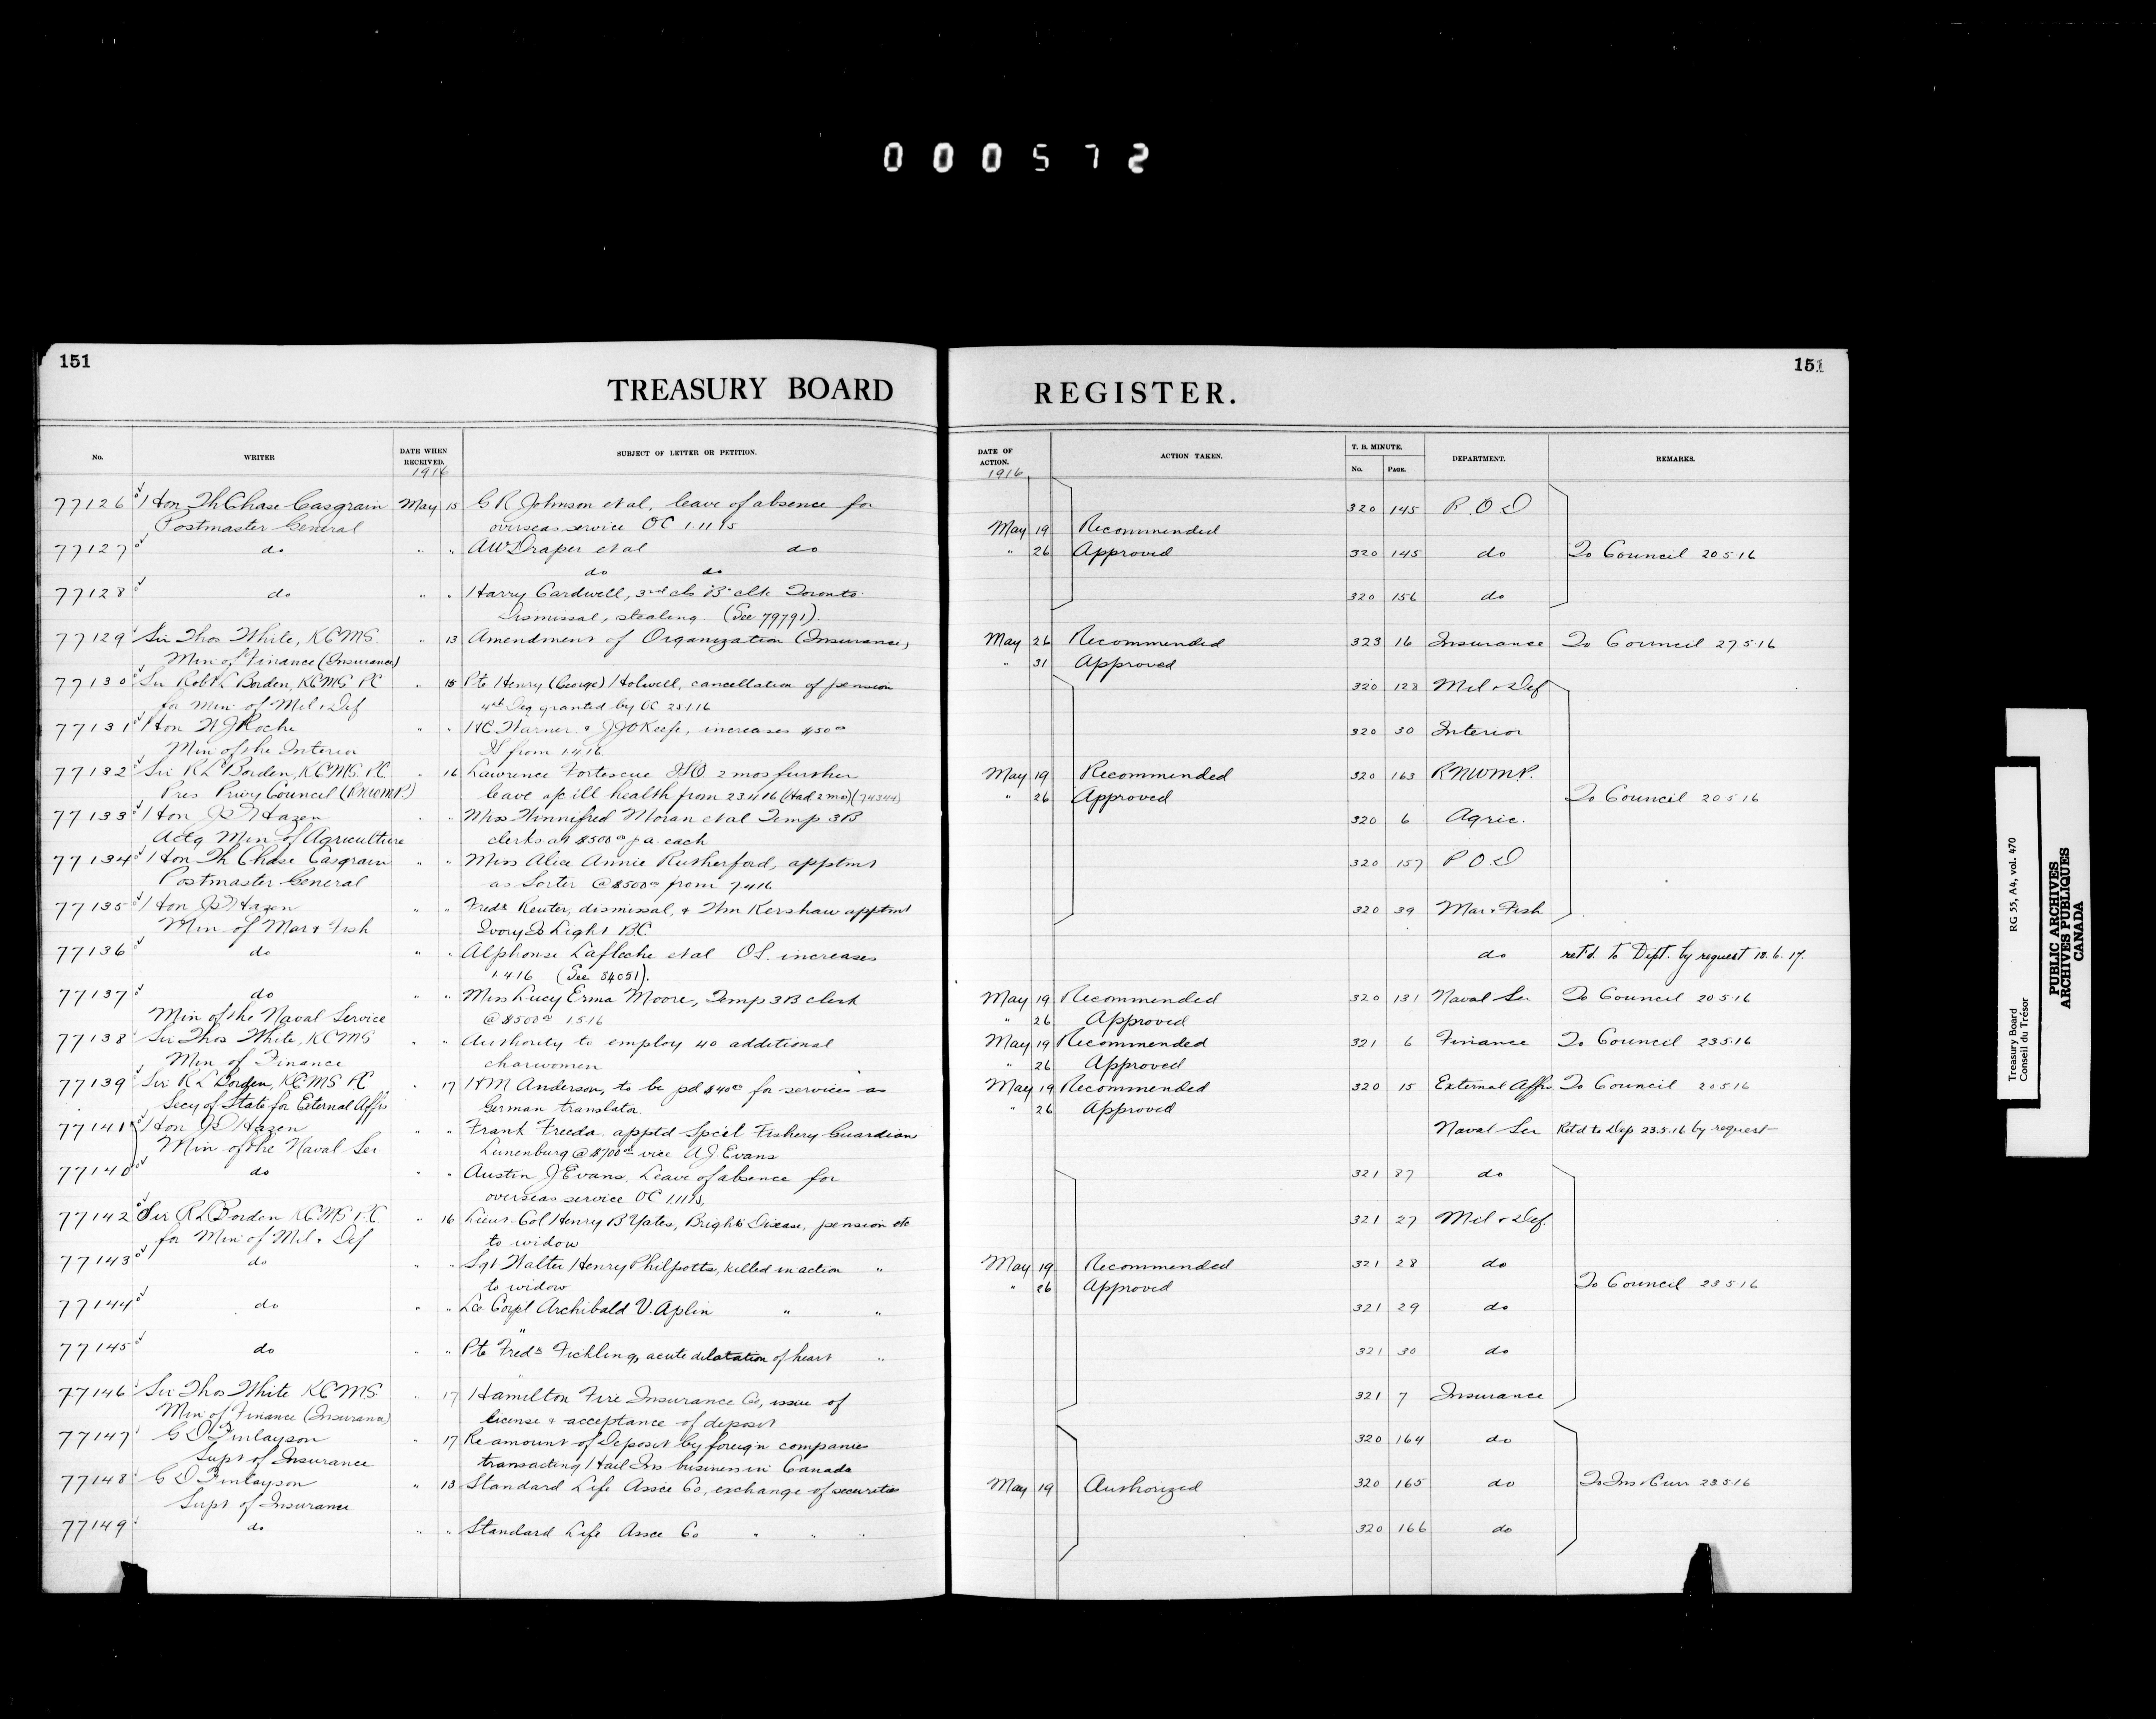 000572
151
TREASURY BOARD
No.
WRITER
DATE WHEN RECEIVED.
1916
SUBJECT OF LETTER OR PETITION.
77126 Hon Th Chase Casgrain May 15 G R Johnson et al, leave of absence for
Postmaster General overseas service OC 1.11.15
77127 do " " AW Draper et al do
do do
77128 do " " Harry Cardwell, 3rd cls B clk Toronto
Dismissal, stealing. (See 79791).
77129 Sir Thos White, KCMG. " 13 Amendment of Organization (Insurance)
Min of Finance (Insurance)
77130 Sir Robt L Borden, KCMG PC " 15 Pte Henry (George) Holwell, cancellation of pension
for Min of Mil & Def 4th Deg granted by OC 28 1 16
77131 Hon W J Roche " " HC Warner & JJ O'Keefe, increases $50.00
Min of the Interior from 1.4.16
77132 Sir R L Borden, KCMG. PC. " 16 Lawrence Fortescue ISO. 2 mos further
Pres Privy Council (RNWMP) leave a/c ill health from 23.4.16 (Had 2 mo) (74344)
77133 Hon J D Hazen " " Miss Winnifred Moran et al Temp 3B
Actg Min of Agriculture clerks at $500.00 p a. each
77134 Hon Th Chase Casgrain " " Miss Alice Annie Rutherford, apptmt
Postmaster General as Sorter @ $500.00 from 7 4 16
77135 Hon J D Hazen " " Fredk Reuter, dismissal, & Wm Kershaw apptmt
Min of Mar & Fish Ivory Is Light B.C.
77136 do " " Alphonse Lafleche et al OS. increases
1.4.16 (See 84051).
77137 do " " Miss Lucy Erma Moore, Temp 3B clerk
Min of the Naval Service @ $500.00 1.5.16
77138 Sir Thos White, KCMG " " Authority to employ 40 additional
Min of Finance charwomen
77139 Sir R L Borden, KCMG PC " 17 HM Anderson, to be pd $40.00 for services as
Secy of State for External Affrs German translator.
77141 Hon J D Hazen " " Frank Freeda. apptd Spc'l Fishery Guardian
Min of the Naval Ser Lunenburg @ $700.00 vice A.J. Evans
77140 do " " Austin J Evans, Leave of absence for
overseas service OC 1.11.15,
77142 Sir R L Borden KCMG P.C. " 16 Lieut-Col Henry B Yates, Bright's Disease, pension etc
for Min of Mil & Def to widow
77143 do " " Sgt Walter Henry Philpotts, killed in action "
to widow
77144 do " " Lce Corpl Archibald V. Aplin " "
"
77145 do " " Pte Fredk Fickling, acute dilatation of heart "
"
77146 Sir Thos White KCMG " 17 Hamilton Fire Insurance Co, issue of
Min of Finance (Insurance) license & acceptance of deposit
77147 G D Finlayson " 17 Re amount of Deposit by foreign companies
Supt of Insurance transacting Hail Ins business in Canada
77148 G D Finlayson " 13 Standard Life Assce Co, exchange of securities
Supt of Insurance
77149 do " " Standard Life Assce Co " " "
151
REGISTER.
DATE OF ACTION.
1916
ACTION TAKEN.
T. B. MINUTE.
No. PAGE.
DEPARTMENT.
REMARKS.
320 145 P.O.D
May 19 Recommended
" 26 Approved 320 145 do To Council 20 5 16
320 156 do
May 26 Recommended 323 16 Insurance To Council 27.5.16
" 31 Approved
320 128 Mil & Def
320 30 Interior
May 19 Recommended 320 163 RNWMP.
" 26 Approved To Council 20 5 16
320 6 Agric.
320 157 P.O.D
320 39 Mar & Fish
do ret'd. to Dept. by request 18.6.17.
May 19 Recommended 320 131 Naval Ser To Council 20 5 16
" 26 Approved
May 19 Recommended 321 6 Finance To Council 23 5 16
" 26 Approved
May 19 Recommended 320 15 External Affrs To Council 20 5 16
" 26 Approved
Naval Ser Retd to Dep 23.5.16 by request
321 87 do
321 27 Mil & Def.
May 19 Recommended 321 28 do
" 26 Approved To Council 23 5 16
321 29 do
321 30 do
321 7 Insurance
320 164 do
May 19 Authorized 320 165 do To Ins & Curr 23 5 16
320 166 do
Treasury Board RG 55, A4, vol. 470
Conseil du Trésor
PUBLIC ARCHIVES
ARCHIVES PUBLIQUES
CANADA